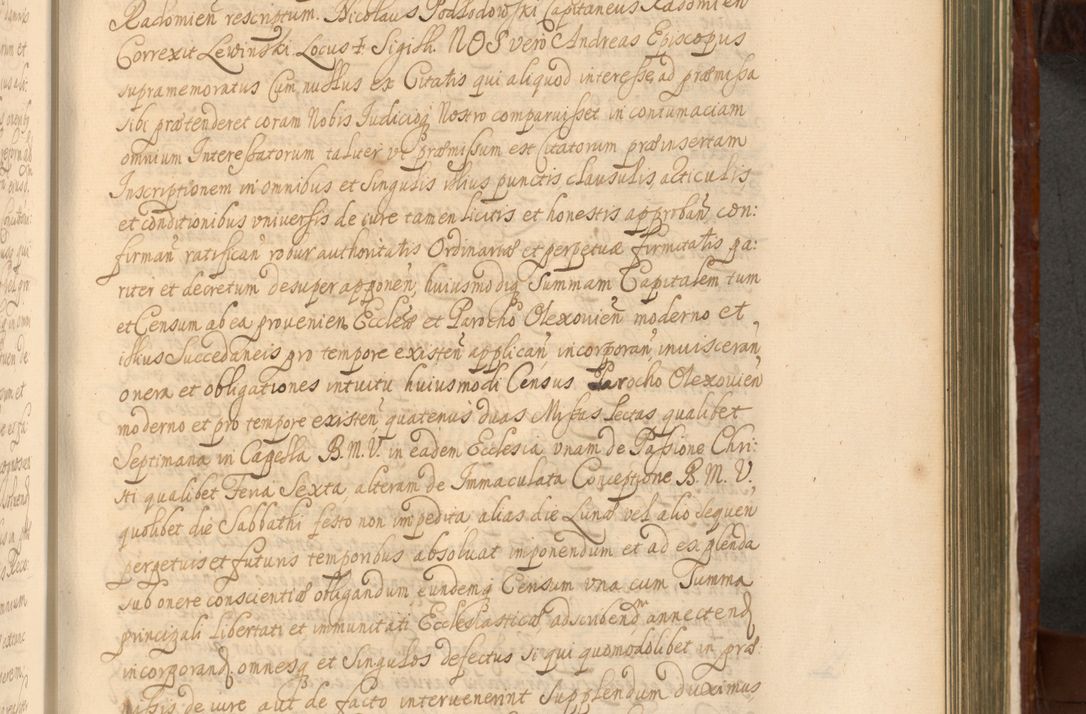 Radomien̄ rescriptum. Nicolaus Podlodowski Capitaneus Radomien
Correxit Lewinski Locus ‡ Sigilli. NOS verò Andreas Episcopus
supramemoratus Cum nullus ex Citatis qui aliquod interesse ad præmissa
sibi prætenderet coram Nobis Iudicioq̢ Nostro comparuisset in contumaciam
omnium Interessatorum taliter vt præmissum est Citatorum præinsertam
Inscriptionem in omnibus et Singulis illius punctis clausulis, articulis
et conditionibus vniversis de iure tamen licitis et honestis approban̄ con:
firman̄ ratifican̄ robur authoritatis Ordinariæ et perpetuæ firmitatis pa:
riter et decretum desuper apponen̄, huiusmodiq̢ Summam Capitalem tum
et Censum ab ea provenien̄ Ecclæ et Parocho Olexovien̄ moderno et
illius Succedaneis pro tempore existen̄ applican̄, incorporan̄, inuisceran̄,
onera et obligationes intuitu huiusmodi Census Parocho Olexovien̄
moderno et pro tempore existen̄ quatenus duas Missas lectas qualibet
Septimana in Capella B. M. V. in eadem Ecclesia vnam de Passione Chri:
sti qualibet Feria Sexta alteram de Immaculata Conceptione B. M. V.
quolibet die Sabbathi festo non impedita alias die Lunæ vel alio sequen̄
perpetuis et futuris temporibus absoluat imponendum et ad explenda
sub onere conscientiæ obligandum eundemq̢ Censum vna cum Summa
principali libertati et immunitati Ecclesiasticæ, adscribendm annectend̢
incorporand̢, omnesq̢ et Singulos defectus si qui quomodolibet in præ:
missis de iure aut de facto intervenerint Supplendum duximus